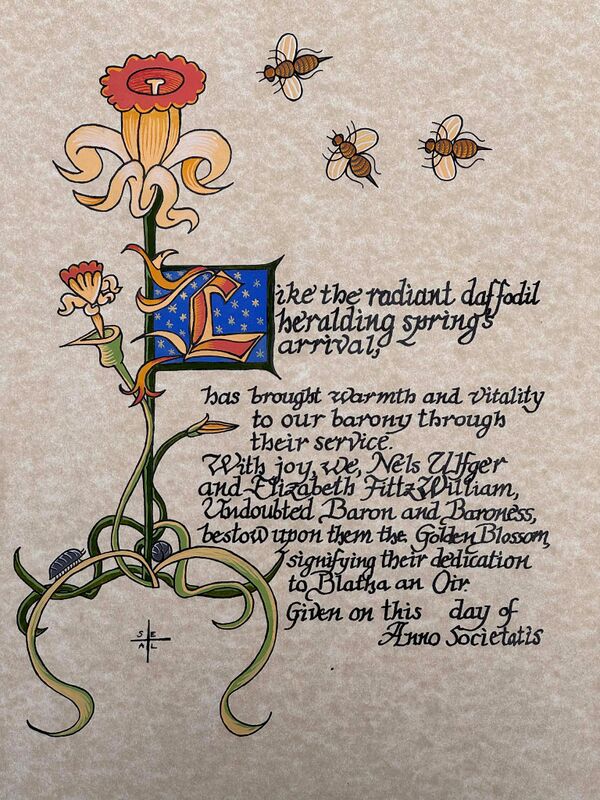 Like the radiant daffodil
heralding spring's
arrival,
has brought warmth and vitality
to our barony through
their service.
With joy, we, Nels Ulfger
and Elizabeth FittzWilliam,
Undoubted Baron and Baroness,
bestow upon them the Golden Blossom,
signifying their dedication
to Blatha an Oir.
Given on this day of
Anno Societatis
SE
AL